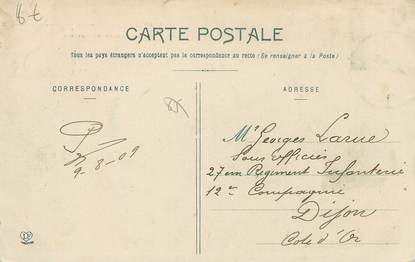 8€
CARTE POSTALE
Tous les pays étrangers n'acceptent pas la correspondance au recto (Se renseigner à la Poste)
CORRESPONDANCE
9-8-09
ADRESSE
Mr Georges Larue
Sous Officier
27em Regiment Infanterie
12e Compagnie
Dijon
Cote d'Or